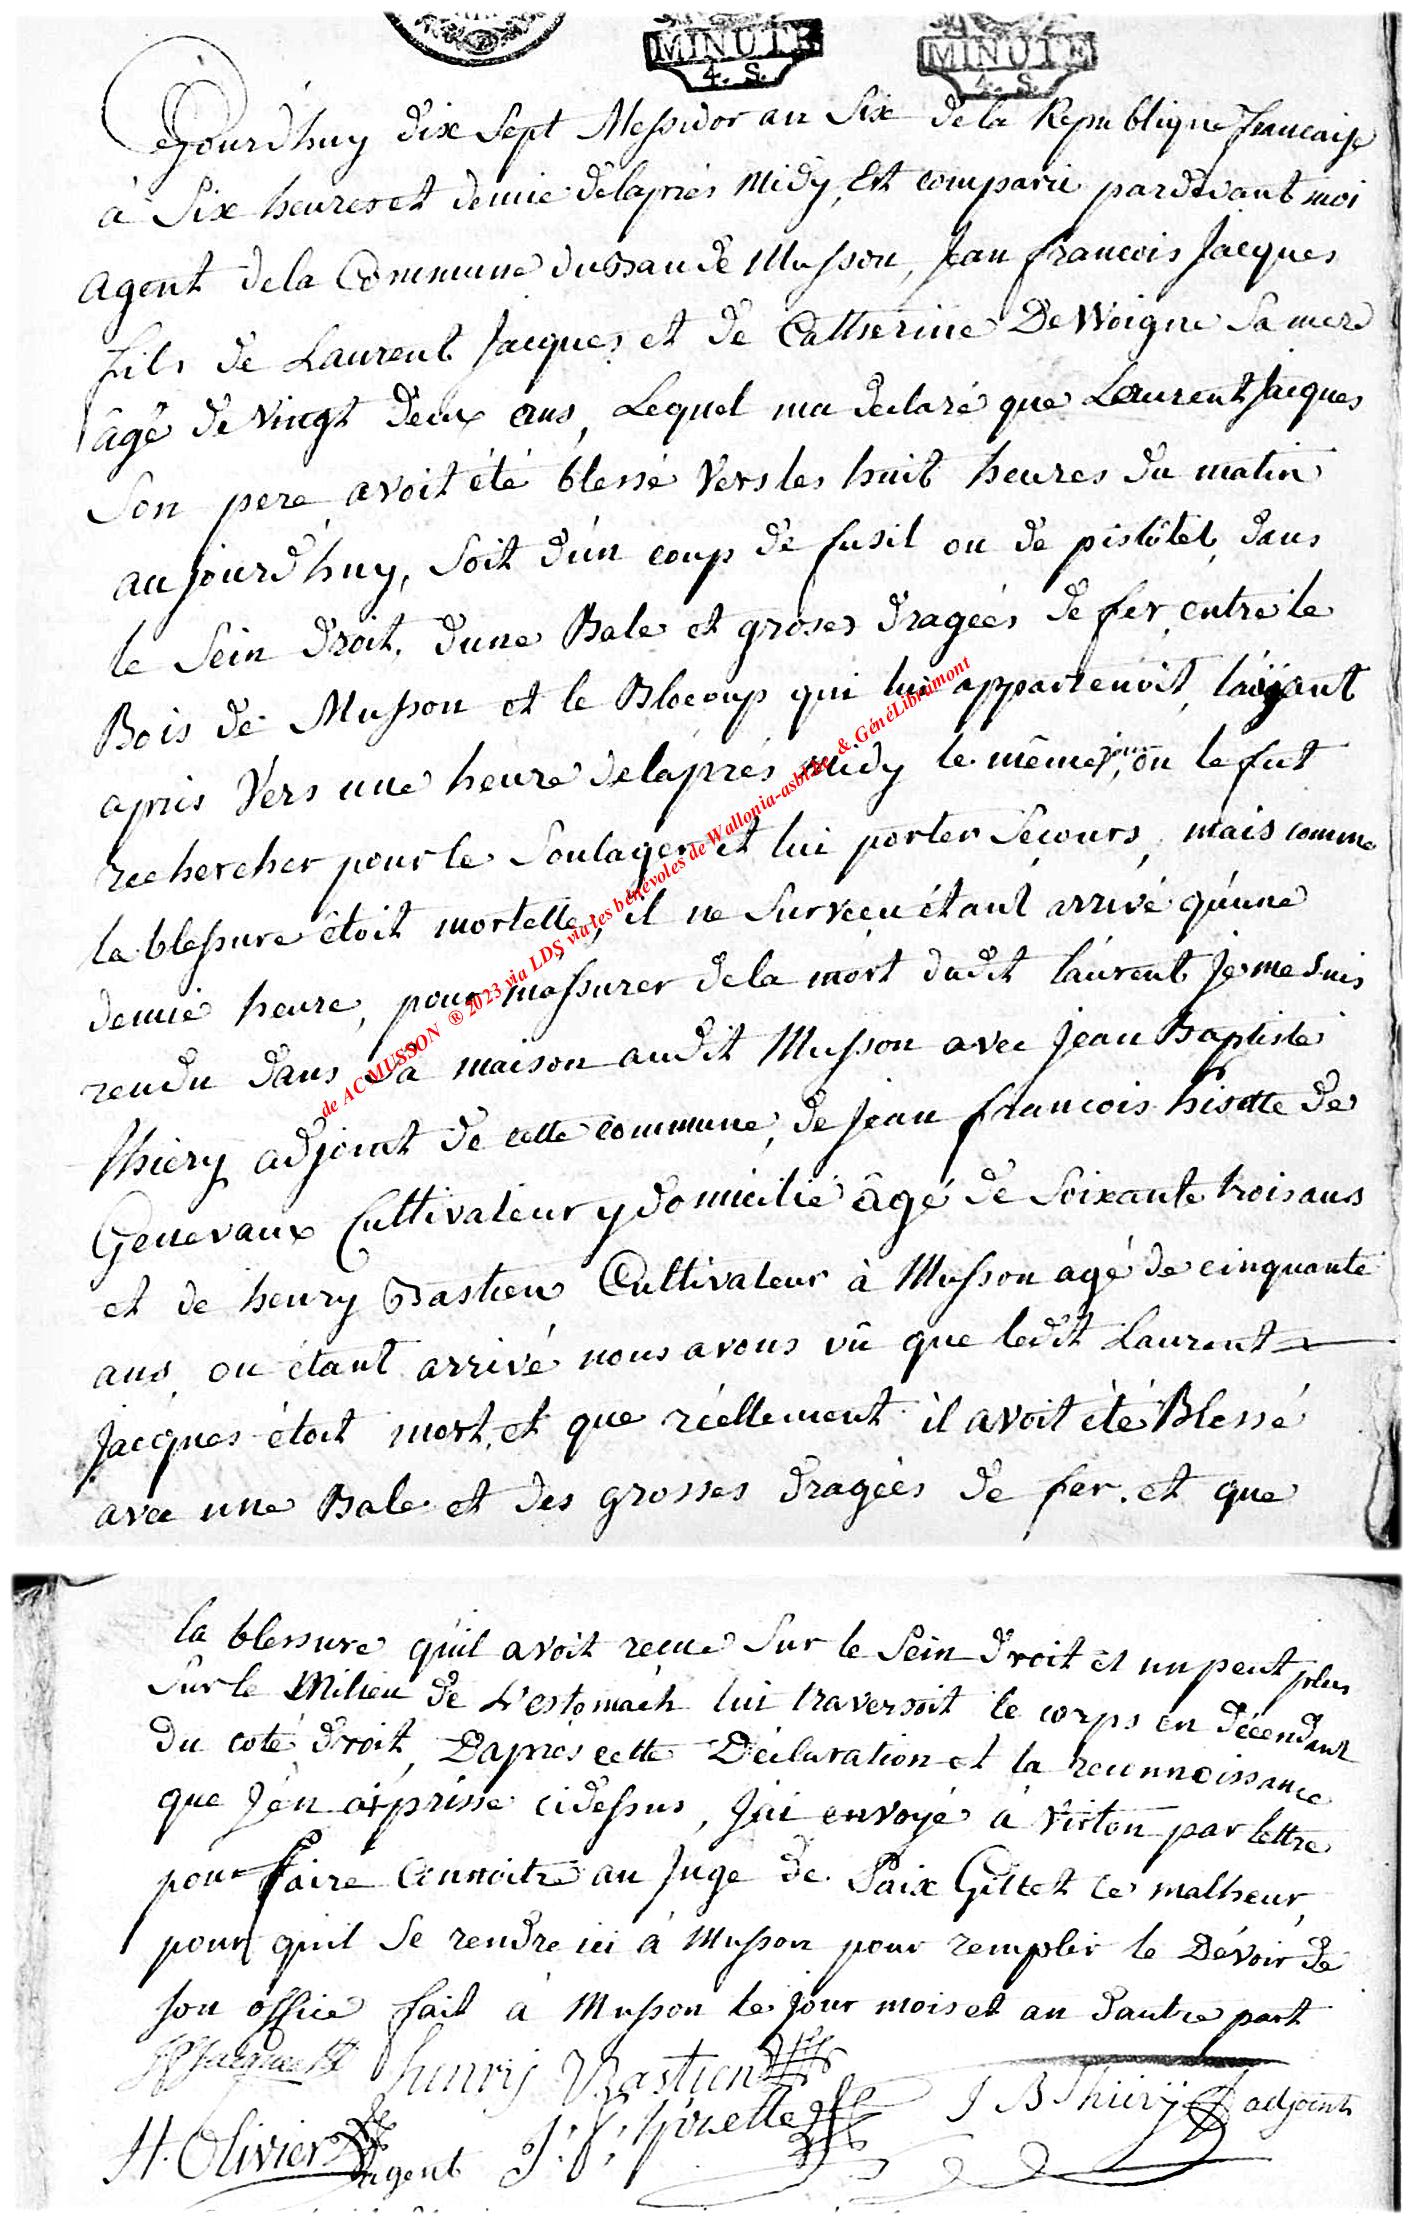 MINUTE MINUTE
4. S. 4. S.
Cejourd'huy dix sept Messidor an Six dela Republique francaise
à Six heures et demie delaprés midy, Est comparu pardevant moi
agent dela Commune du Ban de Musson, Jean francois Jacques
fils de Laurent Jacques et de Catherine De Woigne Sa mere
âgé de vingt deux ans, Lequel ma declaré que Laurent Jacques
Son pere avoit été blessé Vers les huit heures du matin
aujourd'huy, Soit d'ún coup de fusil ou de pistôlet, dans
le Sein droit, d'une Bale et groses dragées de fer, entre le
Bois de Musson et le Blocoup qui lui appartenoit, layant
apris Vers une heure delaprés midy le même jour, on le fut
rechercher pour le Soulager et lui porter Secours, mais comme
la blessure êtoit mortelle, il ne Surveçu étant arrivé qúune
demie heure, pour massurer dela mort dudit laurent Je me Suis
rendu dans Sa maison audit Musson avec Jean Baptiste
thiery adjoint de cette commune, de Jean francois hisette de
Genevaux Cultivateur y domicilié âgé de Soixante trois ans
et de henry Bastien Cultivateur à Musson agé de cinquante
ans, ou étant arrivé nous avons vû que ledit Laurent
Jacques étoit mort, et que réellement il avoit été Blessé
avec une Bale et des grosses dragées de fer. et que
la blessure qúil avoit recue Sur le Sein droit et un peut plus
Sur le Milieu de L'estomach lui traversoit le corps en décendant
du coté droit, D'aprés cette Déclaration et la reconnoissance
que J'én ai prisse cidessus, J'ai envoyé à Virton par lettre
pour faire Connoitre au Juge de Paix Gillet ce malheur,
pour quil Se rendre ici à Musson pour remplir le Dévoir de
son office fait à Musson le Jour mois et an dautre part
henry Bastien
J B Thiery adjoint
H. Olivier agent J. f. hisette
de AC MUSSON ® 2023 via LDS via les bénévoles de Wallonia-asbl.be & GénéLibramont